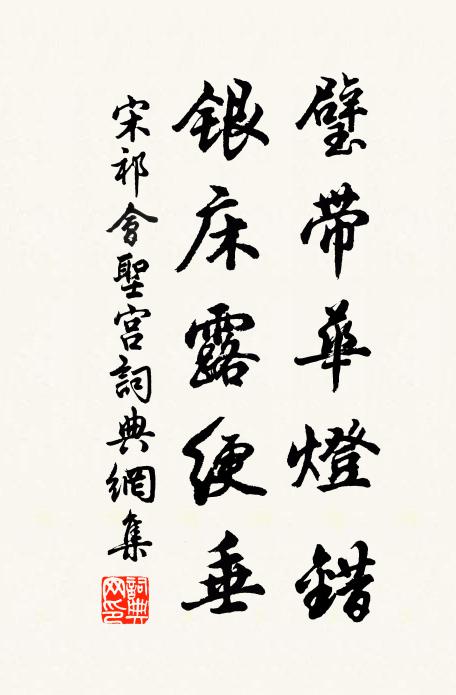 璧帶華燈錯
銀床露綆垂
宋祁會聖宮詞典網集
詞典網印